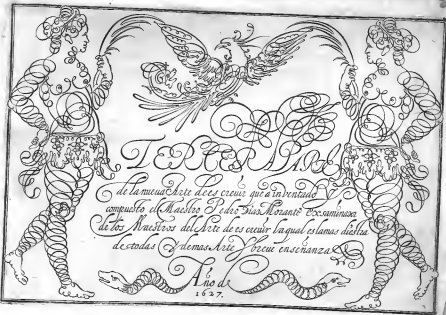 TERCERA PARTE
de la nueua Arte de escreuir que a inventado y
compuesto el Maestro Pedro Diaz Morante Exsaminador
de los Maestros del Arte de escreuir la qual es la mas diestra
de todas y demas Arte y breue enseñanza
Año de
1627.